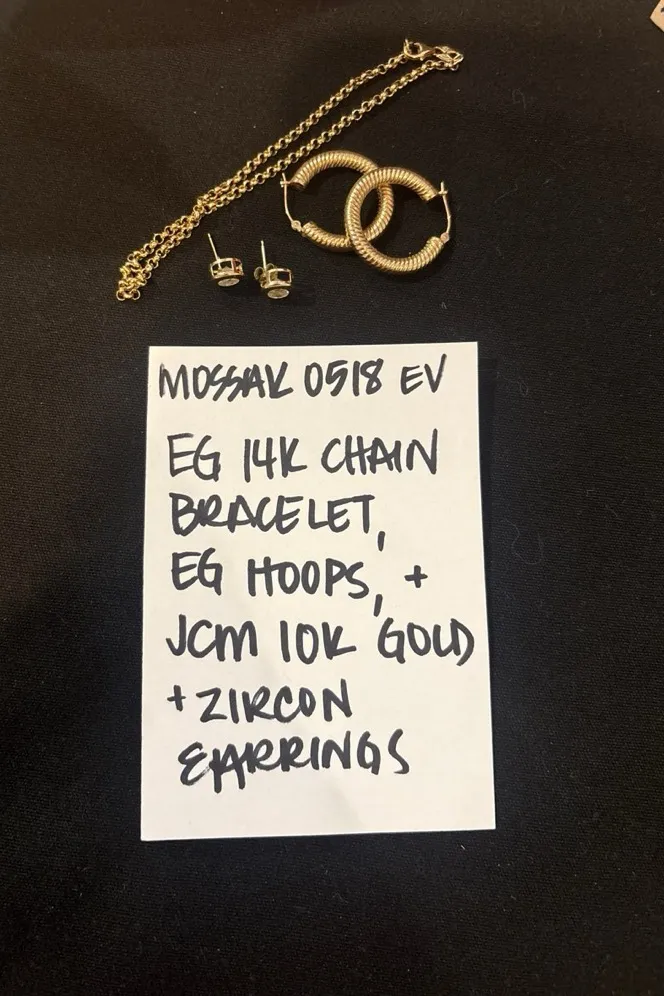 MOSSAK 0518 EV
EG 14K CHAIN
BRACELET,
EG HOOPS, +
JCM 10K GOLD
+ ZIRCON
EARRINGS